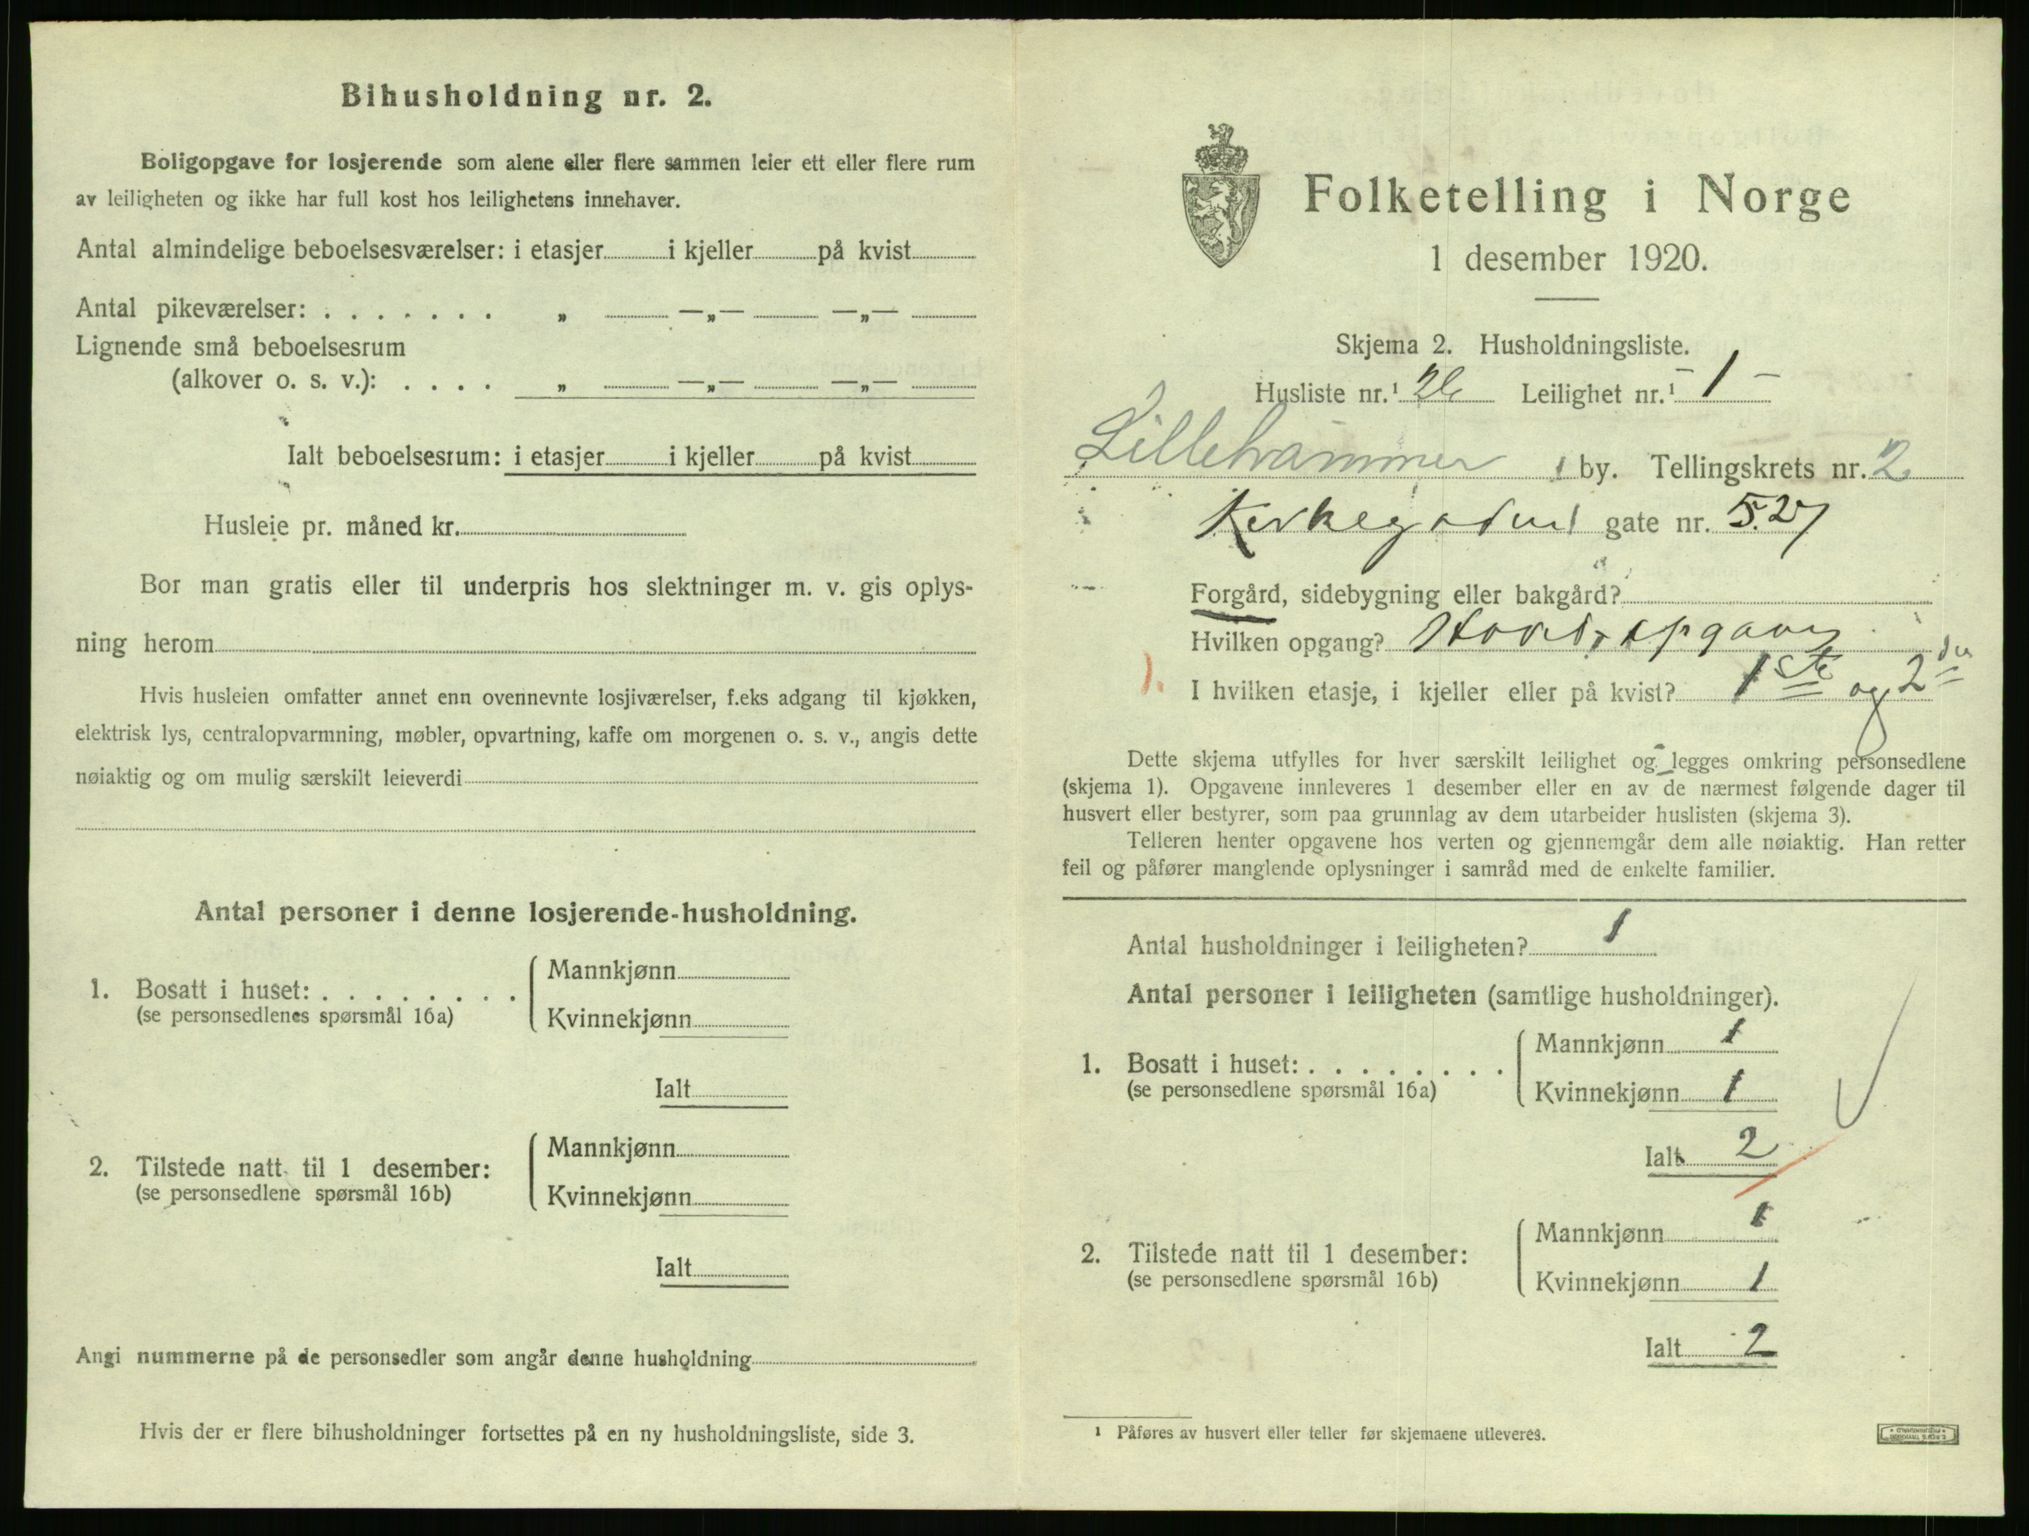 Bihusholdning nr. 2.
Boligopgave for losjerende som alene eller flere sammen leier ett eller flere rum
av leiligheten og ikke har full kost hos leilighetens innehaver.
Antal almindelige beboelsesværelser: i etasjer i kjeller på kvist
Antal pikeværelser: . . . . . . . „ —„— —„—
Lignende små beboelsesrum
(alkover o. s. v.): . . . . „ —„— —„—
Ialt beboelsesrum: i etasjer i kjeller på kvist
Husleie pr. måned kr.
Bor man gratis eller til underpris hos slektninger m. v. gis oplys-
ning herom
Hvis husleien omfatter annet enn ovennevnte losjiværelser, f.eks adgang til kjøkken,
elektrisk lys, centralopvarmning, møbler, opvartning, kaffe om morgenen o. s. v., angis dette
nøiaktig og om mulig særskilt leieverdi
Antal personer i denne losjerende-husholdning.
1. Bosatt i huset: . . . . . . . .
(se personsedlenes spørsmål 16a)
Mannkjønn
Kvinnekjønn
Ialt
2. Tilstede natt til 1 desember:
(se personsedlene spørsmål 16b)
Mannkjønn
Kvinnekjønn
Ialt
Angi nummerne på de personsedler som angår denne husholdning
Hvis der er flere bihusholdninger fortsettes på en ny husholdningsliste, side 3.
Folketelling i Norge
1 desember 1920.
Skjema 2. Husholdningsliste.
Husliste nr.¹ 26 Leilighet nr.¹ - 1 -
Lillehammer by. Tellingskrets nr. 2
Kirkegaden gate nr. 52
Forgård, sidebygning eller bakgård?
Hvilken opgang? Hovedopgang
1. I hvilken etasje, i kjeller eller på kvist? 1ste og 2
Dette skjema utfylles for hver særskilt leilighet og legges omkring personsedlene
(skjema 1). Opgavene innleveres 1 desember eller en av de nærmest følgende dager til
husvert eller bestyrer, som paa grunnlag av dem utarbeider huslisten (skjema 3).
Telleren henter opgavene hos verten og gjennemgår dem alle nøiaktig. Han retter
feil og påfører manglende oplysninger i samråd med de enkelte familier.
Antal husholdninger i leiligheten? 1
Antal personer i leiligheten (samtlige husholdninger).
1. Bosatt i huset: . . . . . . . .
(se personsedlene spørsmål 16a)
Mannkjønn 1
Kvinnekjønn 1
Ialt 2
2. Tilstede natt til 1 desember:
(se personsedlene spørsmål 16b)
Mannkjønn 1
Kvinnekjønn 1
Ialt 2
¹ Påføres av husvert eller teller før skjemaene utleveres.